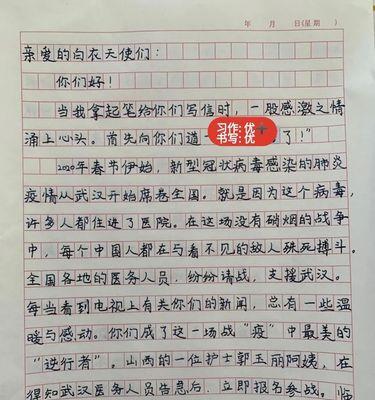 年 月 日(星期 )
亲爱的白衣天使们：
你们好！
当我拿起笔给你们写信时，一股感激之情
涌上心头。首先向你们道一 了！"
习作:优+
书写:优
2020年春节伊始，新型冠状病毒感染的肺炎
疫情从武汉开始席卷全国。就是因为这个病毒，
许多人都住进了医院。在这场没有硝烟的战争
中，每个中国人都在与看不见的敌人殊死搏斗。
全国各地的医务人员，纷纷请战，支援武汉。
每当看到电视上有关你们的新闻，总有一些温
暖与感动。你们成了这一场战"疫"中最美的
"逆行者"。山西的一位护士郭玉丽阿姨，在
得知武汉医务人员告急后，立即报名参战。临